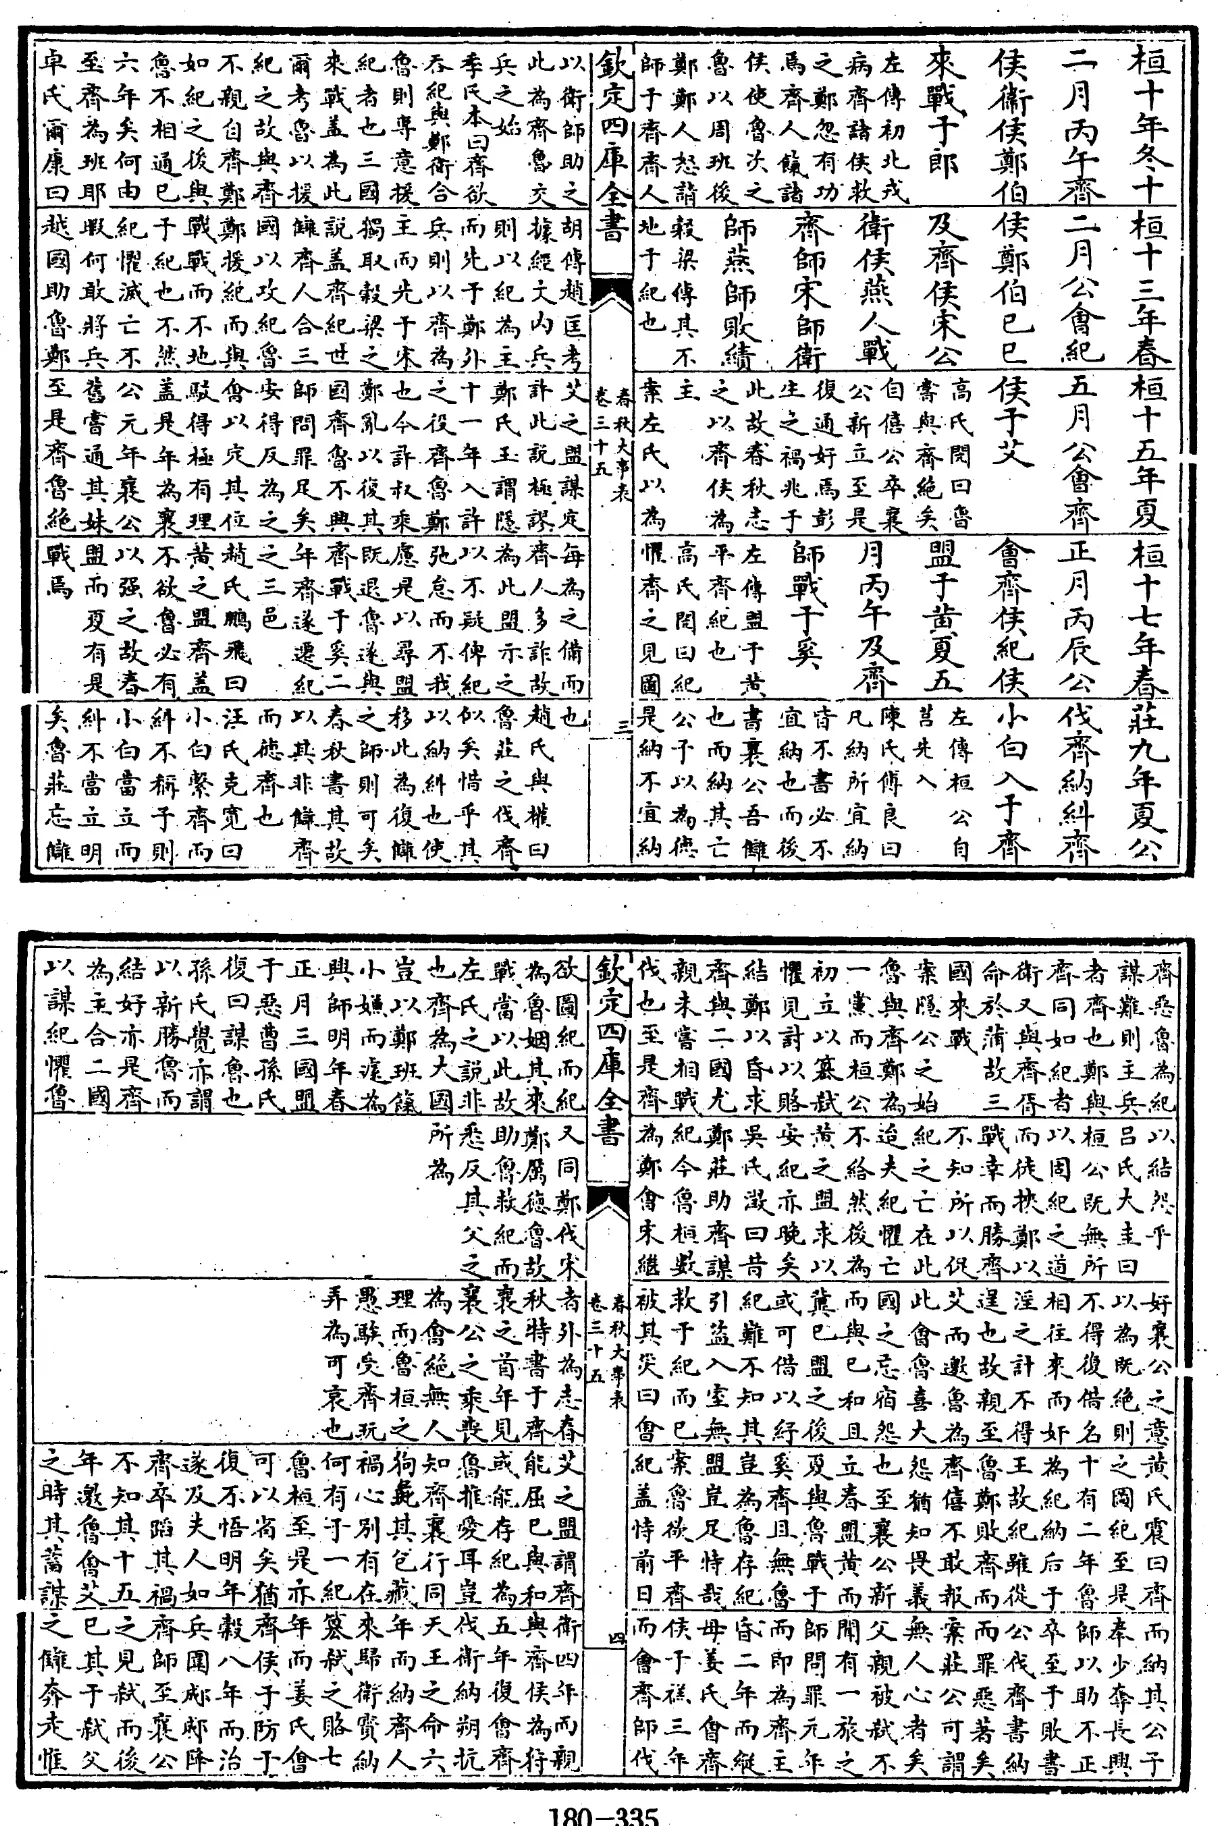 桓十年冬十
二月丙午齊
侯衛侯鄭伯
來戰于郎
左傳初北戎
病齊諸侯救
之鄭忽有功
焉齊人餼諸
侯使魯次之
魯以周班後
鄭鄭人怒請
師于齊齊人
以衛師助之
此為齊魯交
兵之始
季氏本曰齊欲
吞紀與鄭衛合
魯則專意援
紀者也三國
來戰蓋為此
爾考魯以援
紀之故與齊
不親自齊鄭
如紀之後與
魯不相通已
六年矣何由
至齊為班耶
卓氏爾康曰
桓十三年春
二月公會紀
侯鄭伯己巳
及齊侯宋公
衛侯燕人戰
齊師宋師衛
師燕師敗績
穀梁傳其不
地于紀也
胡傳趙匡考
據經文内兵
則以紀為主
而先于鄭外
兵則以齊為
主而先于宋
獨取穀梁之
說蓋齊紀世
讎齊人合三
國以攻紀魯
鄭援紀而與
戰戰而不地
于紀也不然
紀懼滅亡不
暇何敢將兵
越國助魯鄭
桓十五年夏
五月公會齊
侯于艾
高氏閌曰魯
嘗與齊絕矣
自僖公卒襄
公新立至是
復通好焉彭
生之禍兆于
此故春秋志
之以齊侯為
主
案左氏以為
艾之盟謀定
許此說極謬
鄭氏玉謂隱
十一年入許
之役齊魯鄭
也今許叔乘
鄭亂以復其
國齊魯不興
師問罪足矣
安得反為之
會以定其位
駁得極有理
蓋是年為襄
公元年襄公
舊嘗通其妹
至是齊魯絶
桓十七年春
正月丙辰公
會齊侯紀侯
盟于黃夏五
月丙午及齊
師戰于奚
左傳盟于黃
平齊紀也
高氏閌曰紀
懼齊之見圖
每為之備而
齊人多詐故
為此盟示之
以不疑俾紀
弛怠而不我
慮是以尋盟
既退魯遂與
齊戰于奚二
年齊遂遷紀
之三邑
趙氏鵬飛曰
黃之盟齊蓋
不欲魯必有
以强之故春
盟而夏有是
戰焉
莊九年夏公
伐齊納糾齊
小白入于齊
左傳桓公自
莒先入
陳氏傅良曰
凡納所宜納
皆不書必不
宜納也而後
書襄公吾讎
也而納其亡
公子以為德
是納不宜納
也
趙氏與權曰
魯莊之伐齊
似矣惜乎其
以納糾也使
移此為復讎
之師則可矣
春秋書其故
以其非讎齊
而德齊也
汪氏克寛曰
小白繫齊而
糾不稱子則
小白當立而
糾不當立明
矣魯莊忘讎
欽定四庫全書
春秋大事表
卷三十五
三
齊惡魯為紀
謀難則主兵
者齊也鄭與
齊同如紀者
衛又與齊胥
命於蒲故三
國來戰
案隱公之始
魯與齊鄭為
一黨而桓公
初立以簒弑
懼見討以賂
結鄭以昏求
齊與二國尤
親未嘗相戰
伐也至是齊
欲圖紀而紀
為魯姻其來
戰當以此故
左氏之說非
也齊為大國
豈以鄭班餼
小嫌而遽為
興師明年春
正月三國盟
于惡曹孫氏
復曰謀魯也
孫氏覺亦謂
以新勝魯而
結好亦是齊
為主合二國
以謀紀懼魯
以結怨乎
呂氏大圭曰
桓公既無所
以固紀之道
而徒挾鄭以
戰幸而勝齊
不知所以促
紀之亡在此
迨夫紀懼亡
不給然後為
黃之盟求以
安紀亦晚矣
吳氏澂曰昔
鄭莊助齊謀
紀今魯桓數
為鄭會宋繼
又同鄭伐宋
鄭厲德魯故
助魯救紀而
悉反其父之
所為
好襄公之意
以為既絶則
不得復借名
相往來而奸
淫之計不得
逞也故親至
艾而邀魯為
此會魯喜大
國之忌宿怨
而與己和且
冀己盟之後
或可借以紓
紀難不知其
引盜入室無
救于紀而己
被其災曰會
者外為志春
秋特書于齊
襄之首年見
襄公之乘喪
為會絶無人
理而魯桓之
愚騃受齊玩
弄為可哀也
黃氏震曰齊
之圖紀至是
十有二年魯
為紀納后于
王故紀雖從
魯鄭敗齊而
齊僖不敢報
怨猶知畏義
也至襄公新
立春盟黃而
夏與魯戰于
奚齊且無魯
豈為魯存紀
盟豈足恃哉
案魯欲平齊
紀蓋恃前日
艾之盟謂齊
能屈己與和
或能存紀為
魯推愛耳豈
知齊襄行同
狗彘其包藏
禍心別有在
何有于一紀
魯桓至是亦
可以省矣猶
復不悟明年
遂及夫人如
齊卒蹈其禍
不知其十五
年邀魯會艾
之時其蓄謀
而納其公子
奉少奪長興
師以助不正
卒至于敗書
公伐齊書納
而罪惡著矣
案莊公可謂
無人心者矣
父親被弑不
聞有一旅之
師問罪元年
而即為齊主
昏二年而縱
母姜氏會齊
侯于禚三年
而會齊師伐
衛四年而親
與齊侯為狩
五年復會齊
伐衛納朔抗
天王之命六
年而納齊人
來歸衛寶納
簒弑之賂七
年而姜氏會
齊侯于防于
穀八年而治
兵圍郕郕降
齊師至襄公
之見弑而後
已其于弑父
之讎奔走惟
欽定四庫全書
春秋大事表
卷三十五
四
180-335